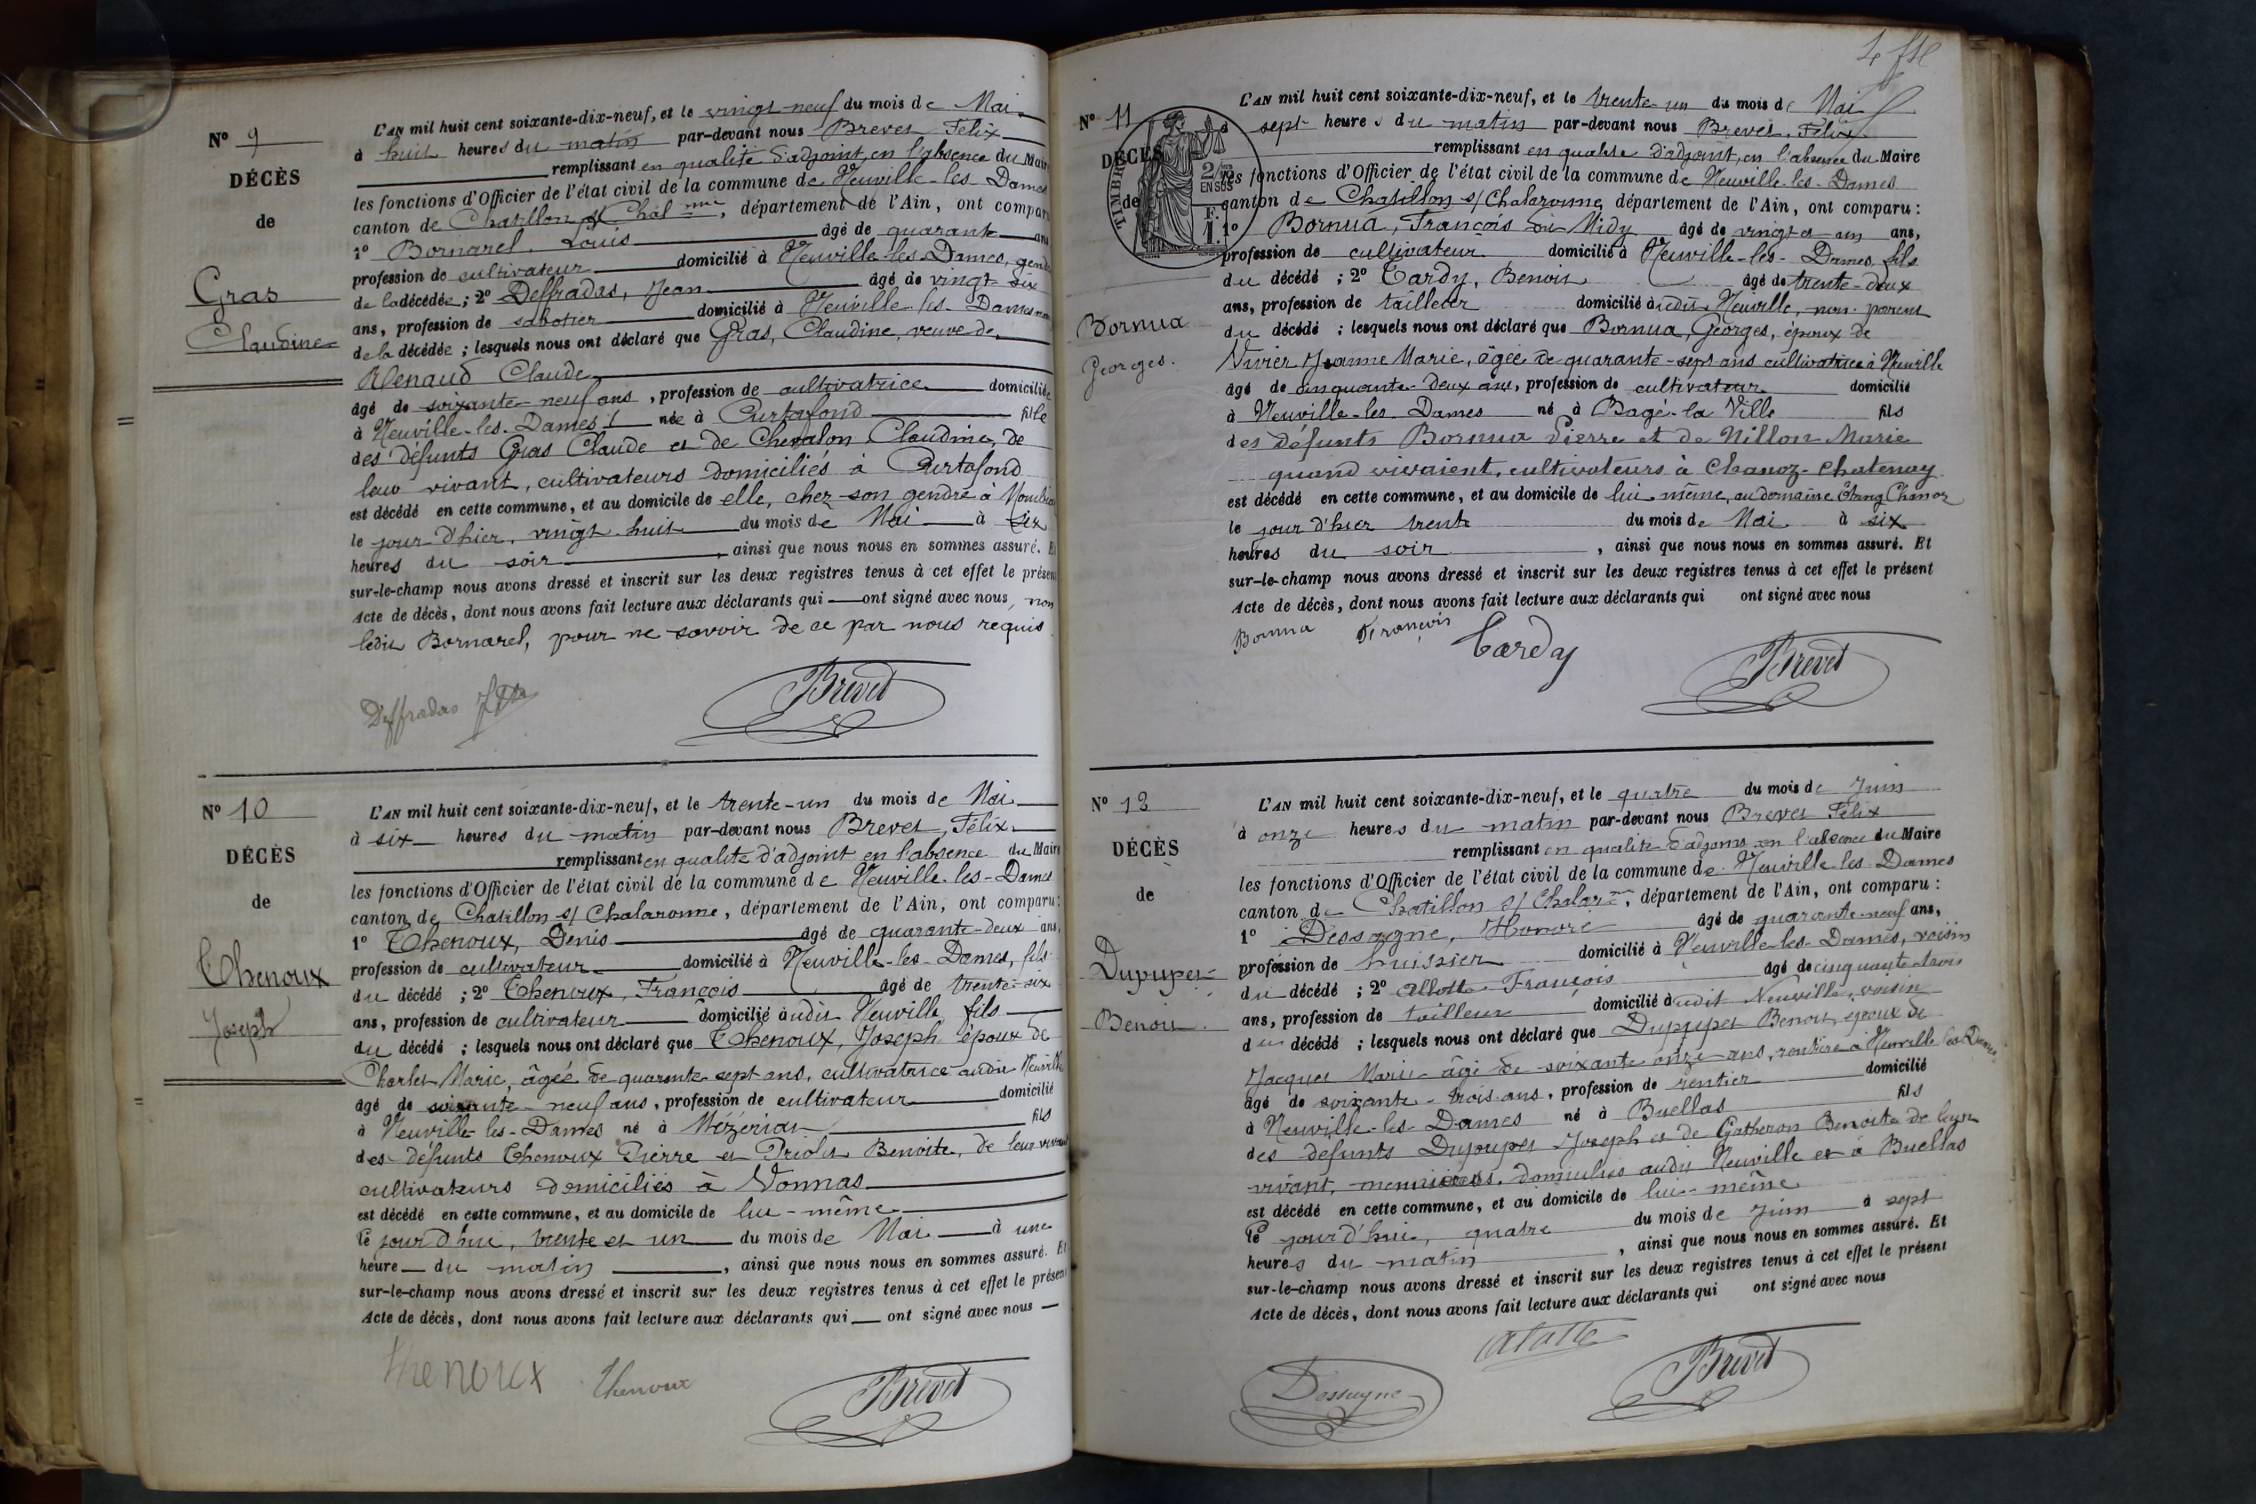 N° 9
DÉCÈS
de
Gras
Claudine
L'AN mil huit cent soixante-dix-neuf, et le vingt-neuf du mois de Mai
à huit heures du matin par-devant nous Brevet Félix
remplissant en qualité d'adjoint, en l'absence du Maire
les fonctions d'Officier de l'état civil de la commune de Neuville-les-Dames
canton de Chatillon s/ Chal nne, département de l'Ain, ont comparu
1° Bornarel Louis âgé de quarante ans
profession de cultivateur domicilié à Neuville-les-Dames, gendre
de la décédée ; 2° Deffradas, Jean âgé de vingt-six
ans, profession de sabotier domicilié à Neuville-les-Dames
de la décédée ; lesquels nous ont déclaré que Gras, Claudine, veuve de
Renaud Claude
âgé de soixante-neuf ans, profession de cultivatrice domiciliée
à Neuville-les-Dames née à Curtafond fille
des défunts Gras Claude et de Chevalon Claudine, de
leur vivant, cultivateurs domiciliés à Curtafond
est décédé en cette commune, et au domicile de elle, chez son gendre à
le jour d'hier, vingt-huit du mois de Mai à six
heures du soir, ainsi que nous nous en sommes assuré. Et
sur-le-champ nous avons dressé et inscrit sur les deux registres tenus à cet effet le présent
Acte de décès, dont nous avons fait lecture aux déclarants qui ont signé avec nous, non
ledit Bornarel, pour ne savoir de ce par nous requis
Deffradas
Brevet
N° 10
DÉCÈS
de
Thenoux
Joseph
L'AN mil huit cent soixante-dix-neuf, et le trente-un du mois de Mai
à six heures du matin par-devant nous Brevet, Félix
remplissant en qualité d'adjoint en l'absence du Maire
les fonctions d'Officier de l'état civil de la commune de Neuville-les-Dames
canton de Chatillon s/ Chalaronne, département de l'Ain, ont comparu :
1° Thenoux, Denis âgé de quarante-deux ans,
profession de cultivateur domicilié à Neuville-les-Dames, fils
du décédé ; 2° Thenoux, François âgé de trente-six
ans, profession de cultivateur domicilié audit Neuville fils
du décédé ; lesquels nous ont déclaré que Thenoux, Joseph époux de
Charlet Marie, âgée de quarante-sept ans, cultivatrice audit Neuville
âgé de soixante-neuf ans, profession de cultivateur domicilié
à Neuville-les-Dames né à Mézériat fils
des défunts Thenoux Pierre et Priolet Benoite, de leur vivant
cultivateurs domiciliés à Vonnas
est décédé en cette commune, et au domicile de lui-même
le jour d'hui, trente et un du mois de Mai à une
heure du matin, ainsi que nous nous en sommes assuré. Et
sur-le-champ nous avons dressé et inscrit sur les deux registres tenus à cet effet le présent
Acte de décès, dont nous avons fait lecture aux déclarants qui ont signé avec nous
thenoux thenoux
Brevet
N° 11
DÉCÈS
de
Bornua
Georges.
TIMBRE
2/10 EN SUS
L'AN mil huit cent soixante-dix-neuf, et le trente-un du mois de Mai
à sept heures du matin par-devant nous Brevet, Félix
remplissant en qualité d'adjoint, en l'absence du Maire
les fonctions d'Officier de l'état civil de la commune de Neuville-les-Dames
canton de Chatillon s/ Chalaronne département de l'Ain, ont comparu :
1° Bornua, François dit Midy âgé de vingt et un ans,
profession de cultivateur domicilié à Neuville-les-Dames, fils
du décédé ; 2° Tardy, Benoit âgé de trente-deux
ans, profession de tailleur domicilié audit Neuville, non parent
du décédé ; lesquels nous ont déclaré que Bornua, Georges, époux de
Vivier Jeanne Marie, âgée de quarante-sept ans cultivatrice à Neuville
âgé de cinquante-deux ans, profession de cultivateur domicilié
à Neuville-les-Dames né à Bagé-la Ville fils
des défunts Bornua Pierre et de Nillon Marie
quand vivaient, cultivateurs à Chanoz-Chatenay
est décédé en cette commune, et au domicile de lui même, au domaine Étang Chanoz
le jour d'hier trente du mois de Mai à six
heures du soir, ainsi que nous nous en sommes assuré. Et
sur-le-champ nous avons dressé et inscrit sur les deux registres tenus à cet effet le présent
Acte de décès, dont nous avons fait lecture aux déclarants qui ont signé avec nous
Bornua François Tardy
Brevet
N° 12
DÉCÈS
de
Dupuper
Benoit.
L'AN mil huit cent soixante-dix-neuf, et le quatre du mois de Juin
à onze heures du matin par-devant nous Brevet Félix
remplissant en qualité d'adjoint en l'absence du Maire
les fonctions d'Officier de l'état civil de la commune de Neuville-les-Dames
canton de Chatillon s/ Chalar ne, département de l'Ain, ont comparu :
1° Dessagne, Honoré âgé de quarante-neuf ans,
profession de huissier domicilié à Neuville-les-Dames, voisin
du décédé ; 2° François âgé de cinquante trois
ans, profession de tailleur domicilié audit Neuville, voisin
du décédé ; lesquels nous ont déclaré que Dupuper Benoit, époux de
Jacquet Marie âgé de soixante onze ans, rentière à Neuville les Dames
âgé de soixante-trois ans, profession de rentier domicilié
à Neuville-les-Dames né à Buellas fils
des défunts Dupuper Joseph et de Gatheron Benoite de leur
vivant, domiciliés audit Neuville et à Buellas
est décédé en cette commune, et au domicile de lui-même
le jour d'hui, quatre du mois de Juin à sept
heures du matin, ainsi que nous nous en sommes assuré. Et
sur-le-champ nous avons dressé et inscrit sur les deux registres tenus à cet effet le présent
Acte de décès, dont nous avons fait lecture aux déclarants qui ont signé avec nous
Dessagne
Brevet